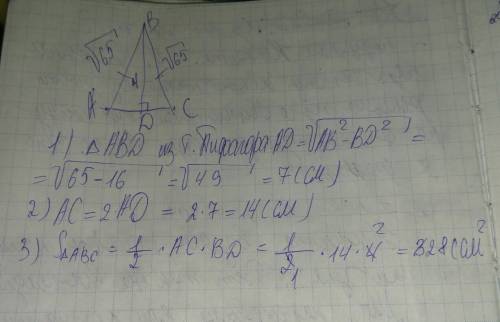 B
√65 √65
4
A D C
1) △ABD из т. Пифагора AD = √AB² - BD² =
= √65 - 16 = √49 = 7 (см)
2) AC = 2AD = 2 · 7 = 14 (см)
3) S△ABC = 1/2 · AC · BD = 1/2 1 · 14 · 4 2 = 28 (см²